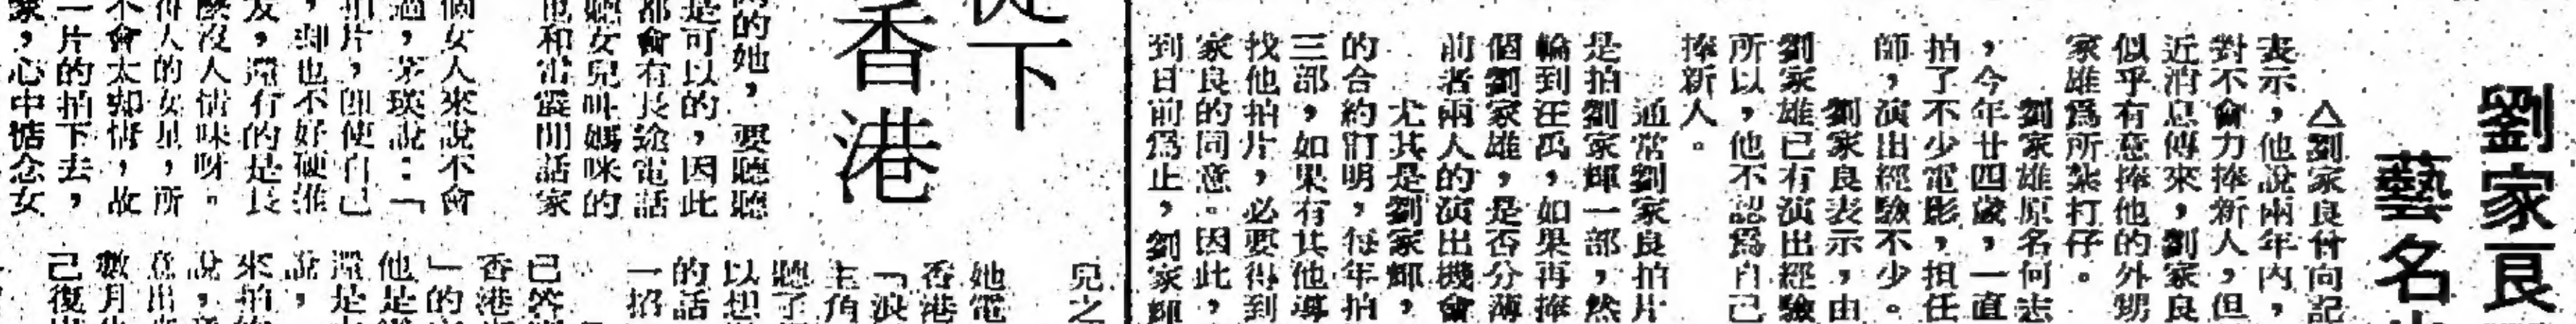 劉家良
藝名
△劉家良曾向記
表示，他說兩年內，
對不會力捧新人，但
近消息傳來，劉家良
似乎有意捧他的外甥
家雄為所柒打仔。
劉家雄原名何志
，今年廿四歲，一直
拍了不少電影，担任
師，演出經驗不少。
劉家良表示，由
劉家雄已有演出經驗
所以，他不認爲自己
捧新人。
通常劉家良拍片
是拍劉家輝一部，然
輪到汪禹，如果再捧
個劉家雄，是否分薄
前者兩人的演出機會
尤其是劉家輝，
的合約訂明，每年拍
三部，如果有其他導
找他拍片，必要得到
家良的同意。因此，
到目前爲止，劉家輝
從下
香港
的她，要聽聽
是可以的，因此
都會有長途電話
她女兒叫媽咪的
也和雷震閒話家
個女人來說不會
過，茅瑛說：「
拍片，即使自己
，卻也不好硬推
友，還有的是長
麽沒人情味呀。
得人的女星，所
不會太卻情，故
一片的拍下去，
家，心中惦念女
兒之
她電
香港
「浪
主角
聽了
以想
的話
一招
已答
香港
」的
他是
還是
說，
來拍
說，
意出
數月
己復出